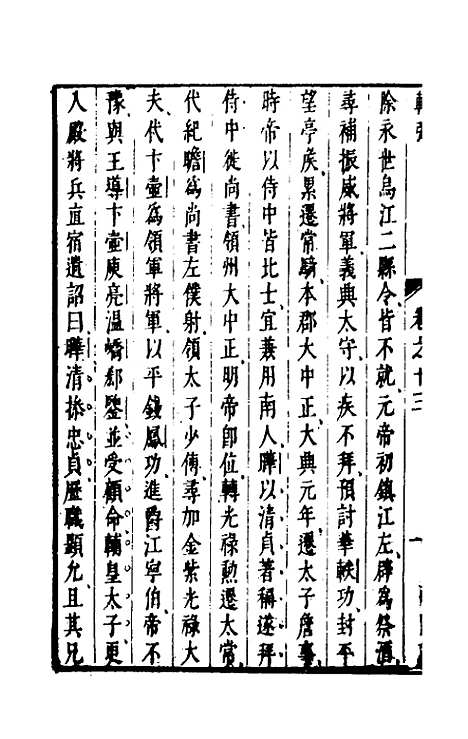 除永世烏江二縣令皆不就元帝初鎮江左辟為祭酒
尋補振威將軍義興太守以疾不拜預討華軼功封平
望亭侯累遷常侍本郡大中正大興元年遷太子詹事
時帝以侍中皆北士宜兼用南人曄以清貞著稱遂拜
侍中徙尚書領州大中正明帝卽位轉光祿勲遷太常
代紀瞻為尚書左僕射領太子少傅尋加金紫光祿大
夫代卞壼為領軍將軍以平錢鳳功進爵江寧伯帝不
豫與王導卞壼庾亮溫嶠郄鑒並受顧命輔皇太子更
入殿將兵直宿遺詔曰曄清操忠貞歷職顯允且其兄
卷之十三
一